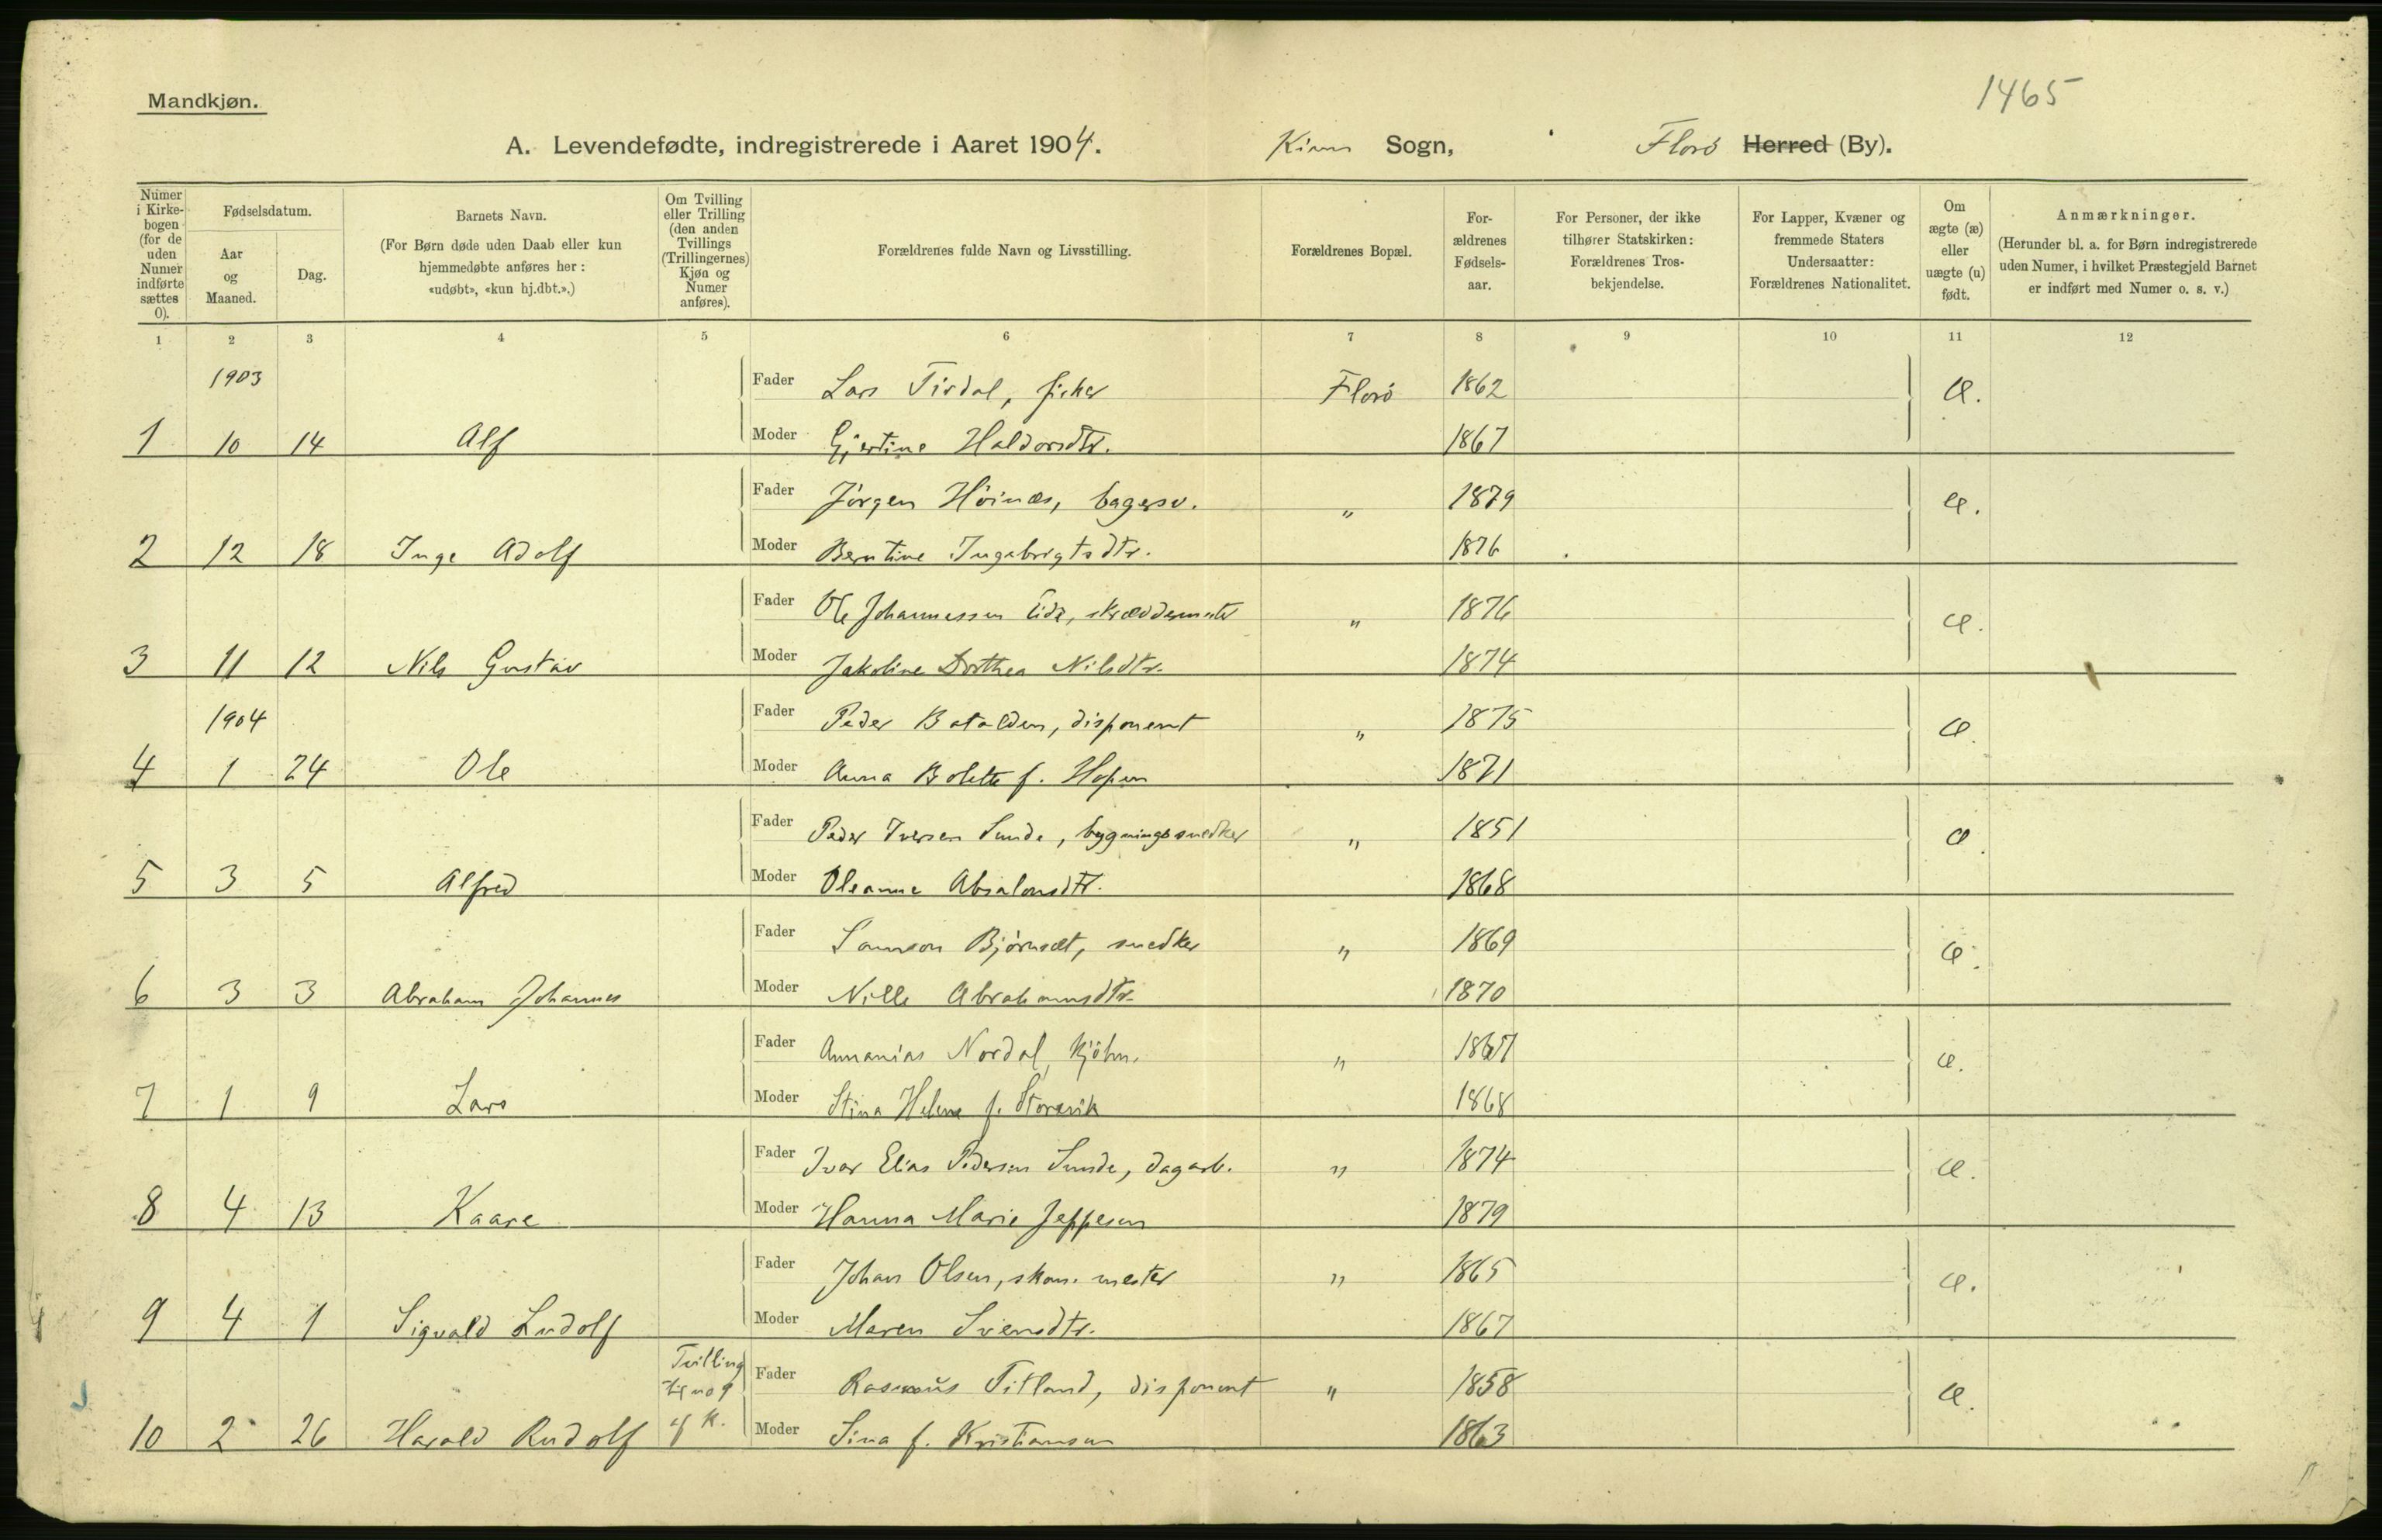 1465
Mandkjøn.
A. Levendefødte, indregistrerede i Aaret 1904. Kinn Sogn, Florö Herred (By).
Numer i Kirkebogen (for de uden Numer indførte sættes 0).
Fødselsdatum.
Aar og Maaned.
Dag.
Barnets Navn.
(For Børn døde uden Daab eller kun hjemmedøbte anføres her: «udøbt», «kun hj.dbt.».)
Om Tvilling eller Trilling (den anden Tvillings (Trillingernes) Kjøn og Numer anføres).
Forældrenes fulde Navn og Livsstilling.
Forældrenes Bopæl.
Forældrenes Fødselsaar.
For Personer, der ikke tilhører Statskirken: Forældrenes Trosbekjendelse.
For Lapper, Kvæner og fremmede Staters Undersaatter: Forældrenes Nationalitet.
Om ægte (æ) eller uægte (u) født.
Anmærkninger.
(Herunder bl. a. for Børn indregistrerede uden Numer, i hvilket Præstegjeld Barnet er indført med Numer o. s. v.)
1 2 3 4 5 6 7 8 9 10 11 12
1903 Fader Lars Tisdal, fisker Florö 1862 æ.
1 10 14 Alf Moder Gjertine Haldorsdtr. 1867
Fader Jörgen Höinæs, bagersv. " 1879 æ.
2 12 18 Inge Adolf Moder Berntine Ingebrigtsdtr. 1876
Fader Ole Johannessen Eide, skræddermster " 1876 æ.
3 11 12 Nils Gustav Moder Jakoline Dorthea Nilsdtr. 1874
1904 Fader Peder Batalden, disponent " 1875 æ.
4 1 24 Ole Moder Anna Bolette f. Hopen 1871
Fader Peder Iversen Sunde, bygningssnedker " 1851 æ.
5 3 5 Alfred Moder Oleanne Absalonsdtr. 1868
Fader Samson Björnset, snedker " 1869 æ.
6 3 3 Abraham Johannes Moder Nille Abrahamsdtr. 1870
Fader Annanias Nordal, kjöbm. " 1867 æ.
7 1 9 Lars Moder Stina Helene f. Storevik 1868
Fader Ivar Elias Pedersen Sunde, dagarb. " 1874 æ.
8 4 13 Kaare Moder Hanna Marie Jeppesen 1879
Fader Johan Olsen, skom. mester " 1865 æ.
9 4 1 Sigvald Ludolf Moder Maren Svensdtr. 1867
Tvilling til no 9 af K. Fader Rasmus Titland, disponent " 1858 æ.
10 2 26 Harald Rudolf Moder Sina f. Kristiansen 1863